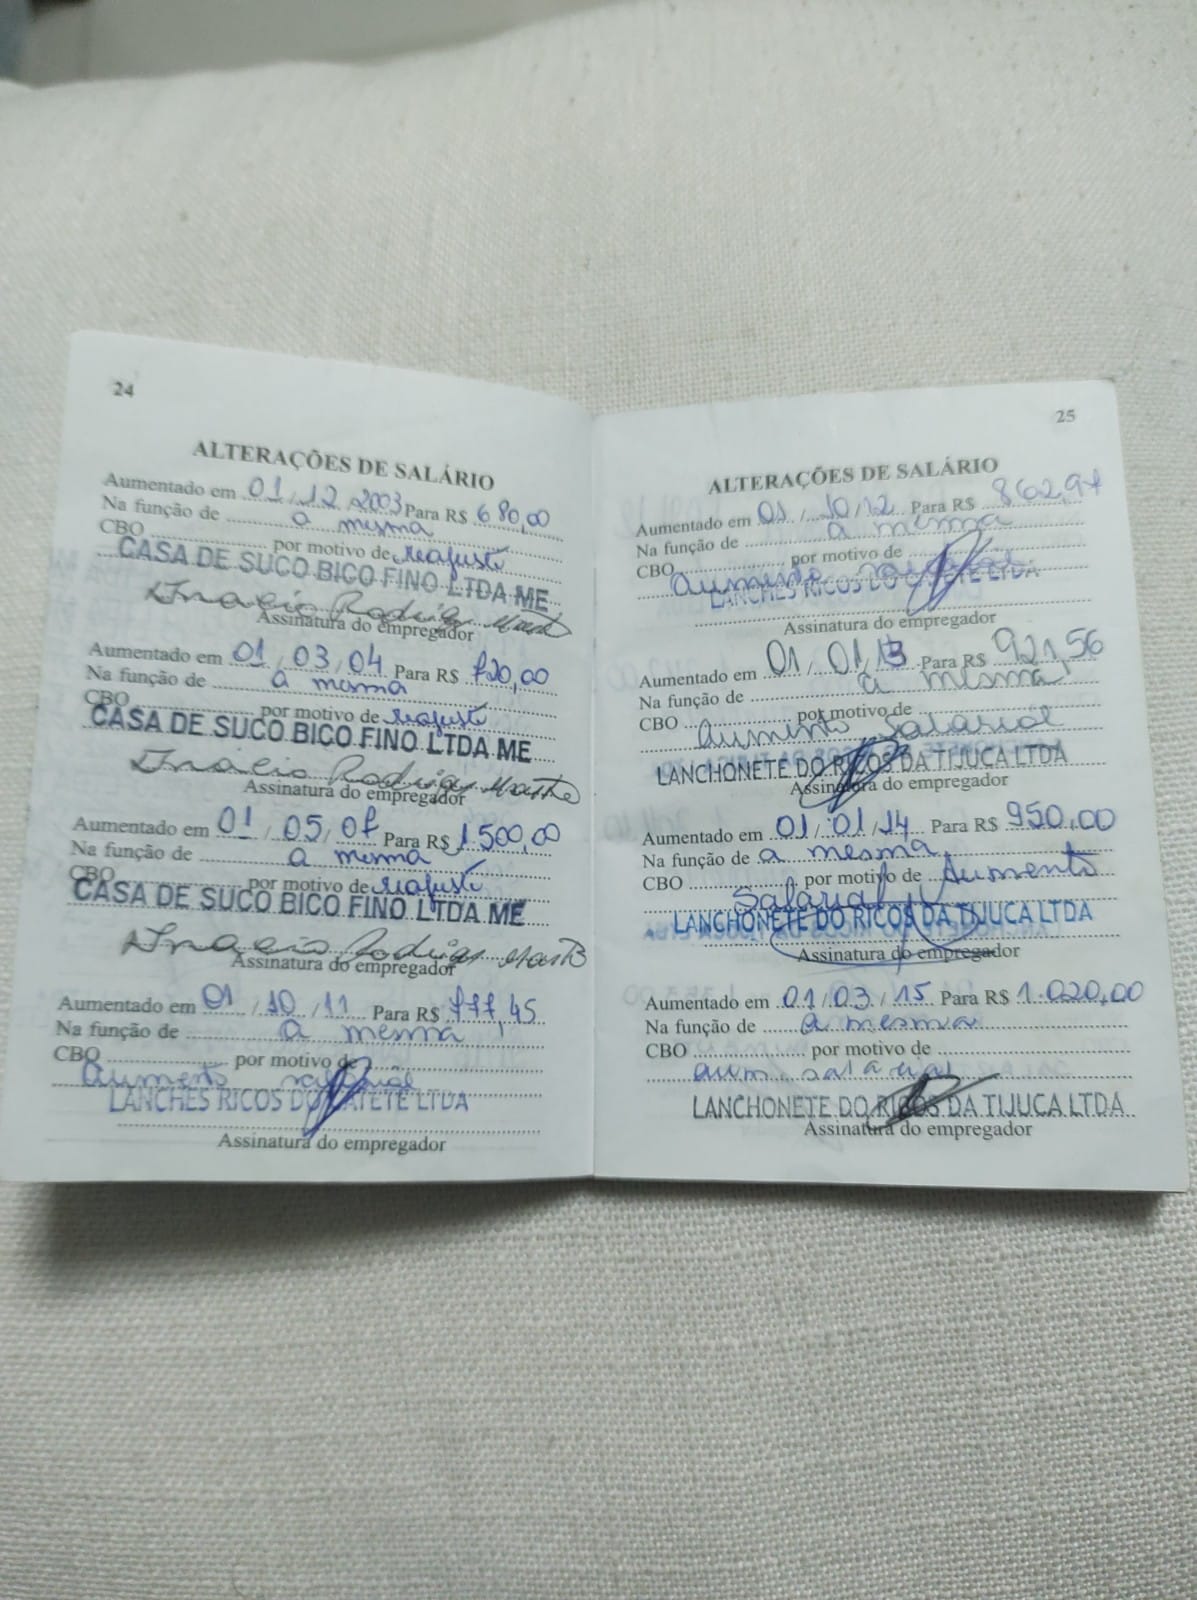 24
ALTERAÇÕES DE SALÁRIO
Aumentado em 01/12/2003 Para R$ 680,00
Na função de a mesma
CBO por motivo de reajuste
CASA DE SUCO BICO FINO LTDA ME
Assinatura do empregador
Aumentado em 01/03/04 Para R$ 720,00
Na função de a mesma
CBO por motivo de reajuste
CASA DE SUCO BICO FINO LTDA ME
Assinatura do empregador
Aumentado em 01/05/07 Para R$ 1.500,00
Na função de a mesma
CBO por motivo de reajuste
CASA DE SUCO BICO FINO LTDA ME
Assinatura do empregador
Aumentado em 01/10/11 Para R$ 777,45
Na função de a mesma
CBO por motivo de
aumento salarial
LANCHES RICOS DO CATETE LTDA
Assinatura do empregador
25
ALTERAÇÕES DE SALÁRIO
Aumentado em 01/10/12 Para R$ 862,97
Na função de a mesma
CBO por motivo de
aumento salarial
LANCHES RICOS DO CATETE LTDA
Assinatura do empregador
Aumentado em 01/01/13 Para R$ 921,56
Na função de a mesma
CBO por motivo de
aumento salarial
LANCHONETE DO RICOS DA TIJUCA LTDA
Assinatura do empregador
Aumentado em 01/01/14 Para R$ 950,00
Na função de a mesma
CBO por motivo de Aumento
Salarial
LANCHONETE DO RICOS DA TIJUCA LTDA
Assinatura do empregador
Aumentado em 01/03/15 Para R$ 1.020,00
Na função de a mesma
CBO por motivo de
aum. salarial
LANCHONETE DO RICOS DA TIJUCA LTDA
Assinatura do empregador